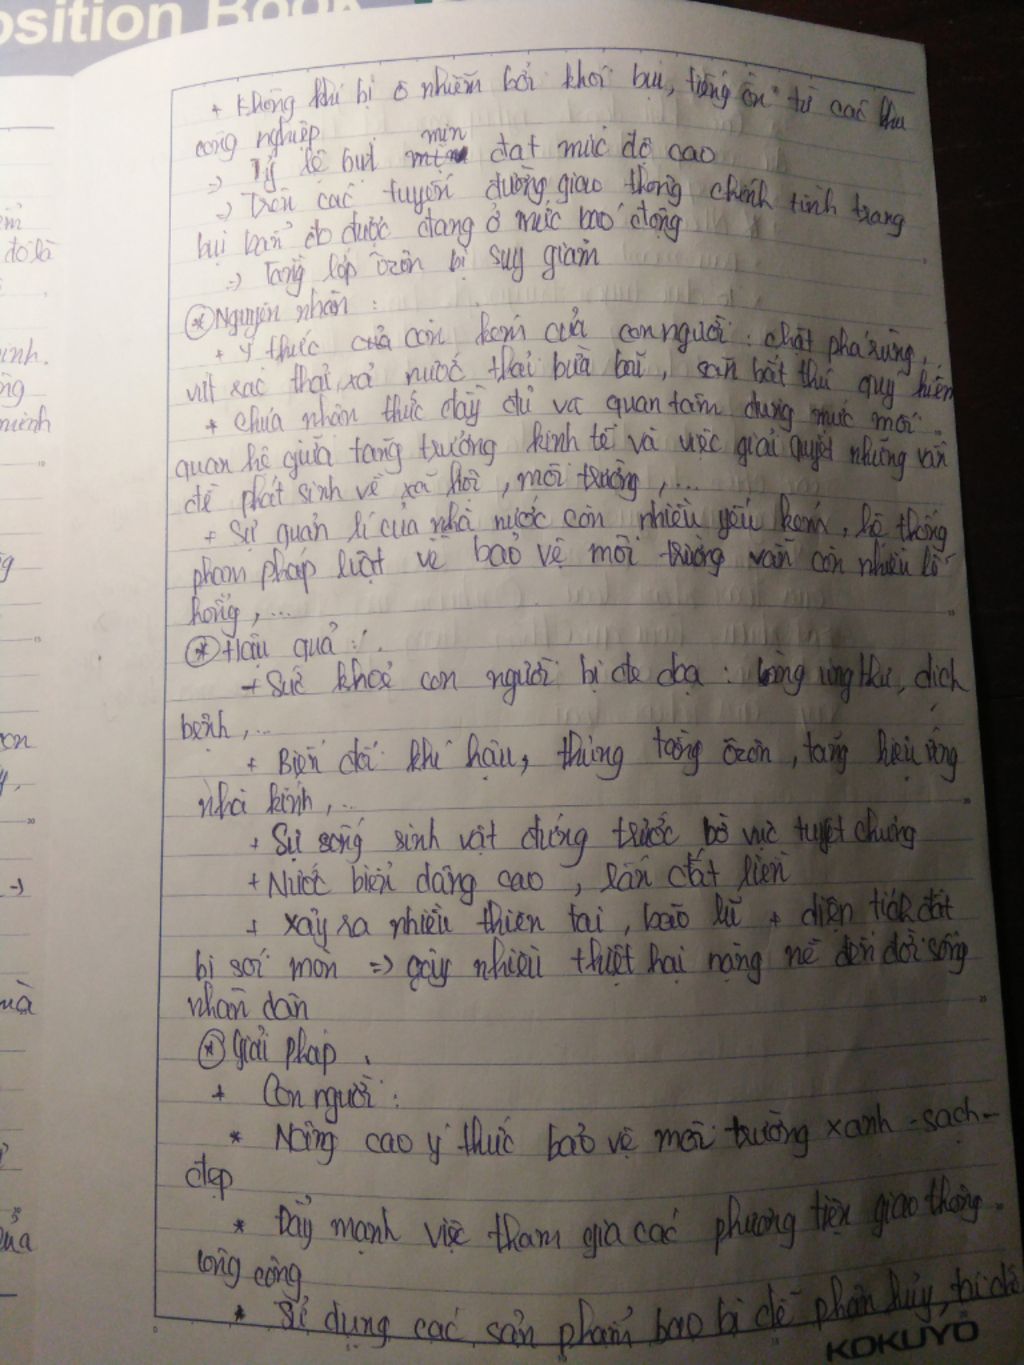 osition Book
+ Không khí bị ô nhiễm bởi khói bụi, tiếng ồn từ các khu
công nghiệp
mịn
=> Tỷ lệ bụi đạt mức độ cao
=> Trên các tuyến đường giao thông chính tình trạng
bụi bẩn đo được đang ở mức báo động
=> Tầng lớp ôzôn bị suy giảm
* Nguyên nhân :
+ Ý thức của còn kém của con người : chặt phá rừng,
vứt rác thải, xả nước thải bừa bãi, săn bắt thú quý hiếm
+ Chưa nhận thức đầy đủ và quan tâm đúng mức mối
quan hệ giữa tăng trưởng kinh tế và việc giải quyết những vấn
đề phát sinh về xã hội, môi trường, ...
+ Sự quản lí của nhà nước còn nhiều yếu kém, hệ thống
pham pháp luật về bảo vệ môi trường vẫn còn nhiều lỗ
hổng, ...
* Hậu quả :
+ Sức khoẻ con người bị đe doạ : ung thư, dịch
bệnh, ...
+ Biến đổi khí hậu, thủng tầng ôzôn, tăng hiệu ứng
nhà kính, ...
+ Sự sống sinh vật đứng trước bờ vực tuyệt chủng
+ Nước biển dâng cao, lấn đất liền
+ Xảy ra nhiều thiên tai, bão lũ + diện tích đất
bị sói mòn => gây nhiều thiệt hại nặng nề đến đời sống
nhân dân
* Giải pháp
+ Con người :
* Nâng cao ý thức bảo vệ môi trường xanh - sạch -
đẹp
* Đẩy mạnh việc tham gia các phương tiện giao thông
công cộng
* Sử dụng các sản phẩm bao bì dễ phân hủy, tái chế
KOKUYO